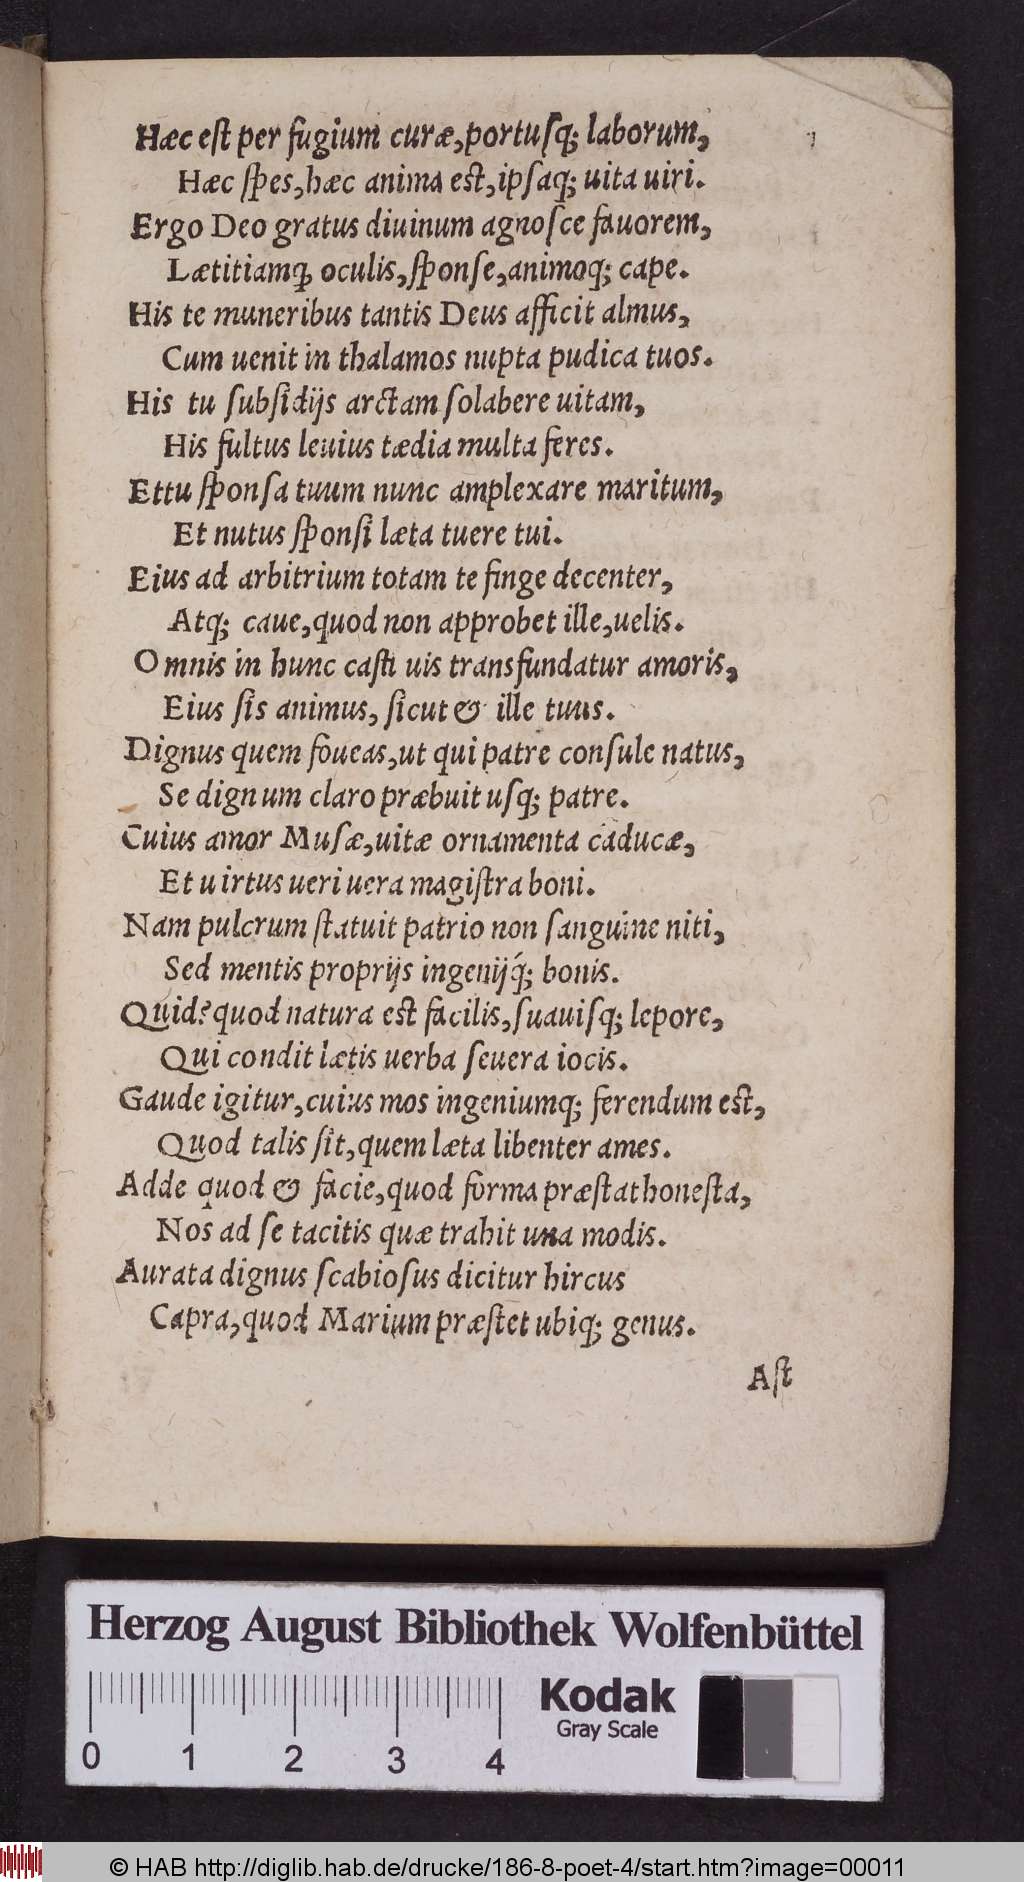 Hæc eſt per fugium curæ, portuſq; laborum,
Hæc ſpes, hæc anima est, ipſaq; uita uiri.
Ergo Deo gratus diuinum agnoſce fauorem,
Lætitiamq; oculis, ſponſe, animoq; cape.
His te muneribus tantis Deus afficit almus,
Cum uenit in thalamos nupta pudica tuos.
His tu ſubſidijs arctam ſolabere uitam,
His fultus leuius tædia multa feres.
Et tu ſponſa tuum nunc amplexare maritum,
Et nutus ſponſi læta tuere tui.
Eius ad arbitrium totam te finge decenter,
Atq; caue, quod non approbet ille, uelis.
Omnis in hunc caſti uis transfundatur amoris,
Eius ſis animus, ſicut & ille tuus.
Dignus quem foueas, ut qui patre conſule natus,
Se dignum claro præbuit uſq; patre.
Cuius amor Muſæ, uitæ ornamenta caducæ,
Et uirtus ueri uera magiſtra boni.
Nam pulcrum ſtatuit patrio non ſanguine niti,
Sed mentis proprijs ingenijq́; bonis.
Quid? quod natura eſt facilis, ſuauiſq; lepore,
Qui condit lætis uerba ſeuera iocis.
Gaude igitur, cuius mos ingeniumq; ferendum eſt,
Quod talis ſit, quem læta libenter ames.
Adde quod & facie, quod forma præſtat honeſta,
Nos ad ſe tacitis quæ trahit una modis.
Aurata dignus ſcabioſus dicitur hircus
Capra, quod Marium præſtet ubiq; genus.
Aſt
Herzog August Bibliothek Wolfenbüttel
Kodak
Gray Scale
0 1 2 3 4
© HAB http://diglib.hab.de/drucke/186-8-poet-4/start.htm?image=00011